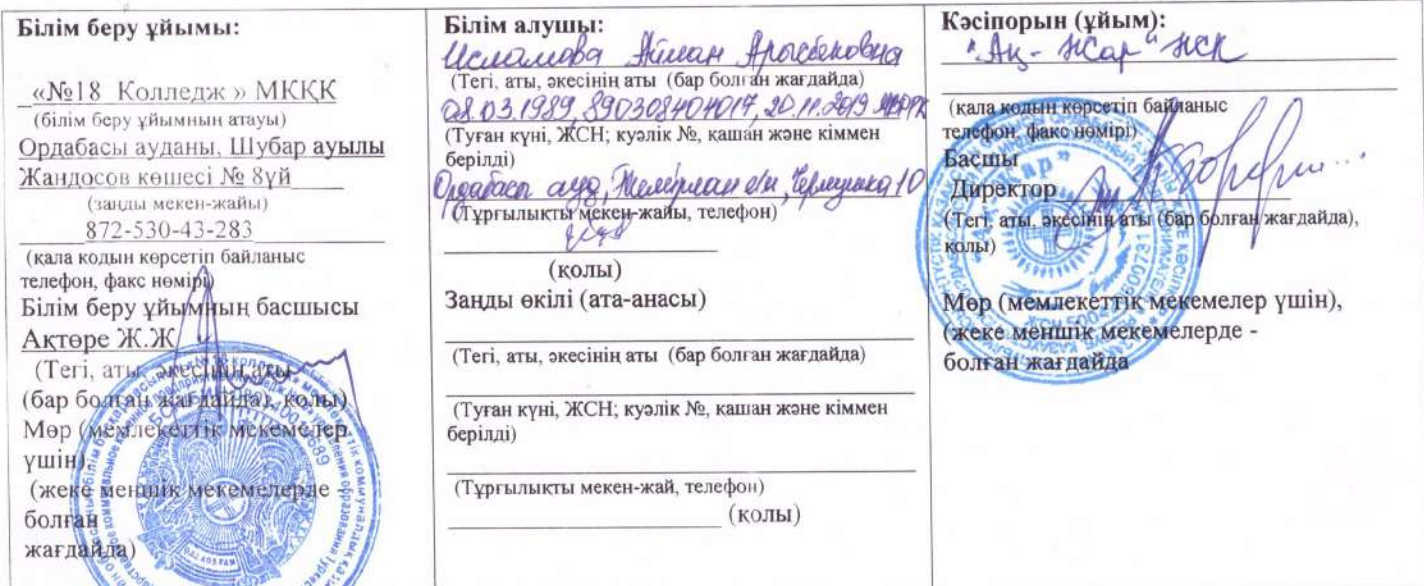 Білім беру ұйымы:
«№18 Колледж » МКҚК
(білім беру ұйымның атауы)
Ордабасы ауданы, Шубар ауылы
Жандосов көшесі № 8үй
(заңды мекен-жайы)
872-530-43-283
(қала кодын көрсетіп байланыс
телефон, факс нөмірі)
Білім беру ұйымның басшысы
Ақтөре Ж.Ж
(Тегі, аты, әкесінің аты
(бар болған жағдайда), қолы)
Мөр (мемлекеттік мекемелер
үшін),
(жеке меншік мекемелерде
болған
жағдайда)
Білім алушы:
Исламова Айман Арысбековна
(Тегі, аты, әкесінің аты (бар болған жағдайда)
08.03.1989, 890308404017, 20.11.2019
(Туған күні, ЖСН; куәлік №, қашан және кіммен
берілді)
Ордабасы ауд, Темірлан е/м, 10
(Тұрғылықты мекен-жайы, телефон)
(қолы)
Заңды өкілі (ата-анасы)
(Тегі, аты, әкесінің аты (бар болған жағдайда)
(Туған күні, ЖСН; куәлік №, қашан және кіммен
берілді)
(Тұрғылықты мекен-жай, телефон)
(қолы)
Кәсіпорын (ұйым):
"Ақ-Жар" ЖК
(қала кодын көрсетіп байланыс
телефон, факс нөмірі)
Басшы
Директор
(Тегі, аты, әкесінің аты (бар болған жағдайда),
қолы)
Мөр (мемлекеттік мекемелер үшін),
(жеке меншік мекемелерде -
болған жағдайда